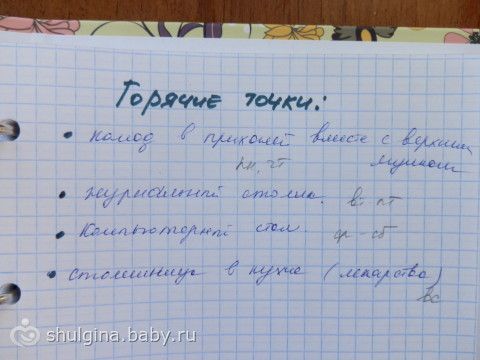 Горячие точки:
• комод в прихожей вместе с верхним
пн, чт ящиком
• журнальный столик. вт пт
• Компьютерный стол. ср-сб
• столешница в кухне (лекарства)
вс
shulgina.baby.ru